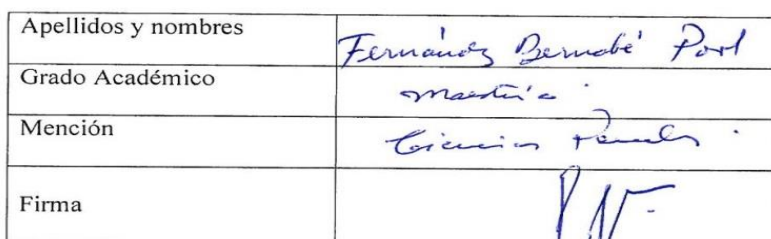 Apellidos y nombres Fernández Bernabé
Grado Académico Maestría
Mención Ciencias Penales
Firma